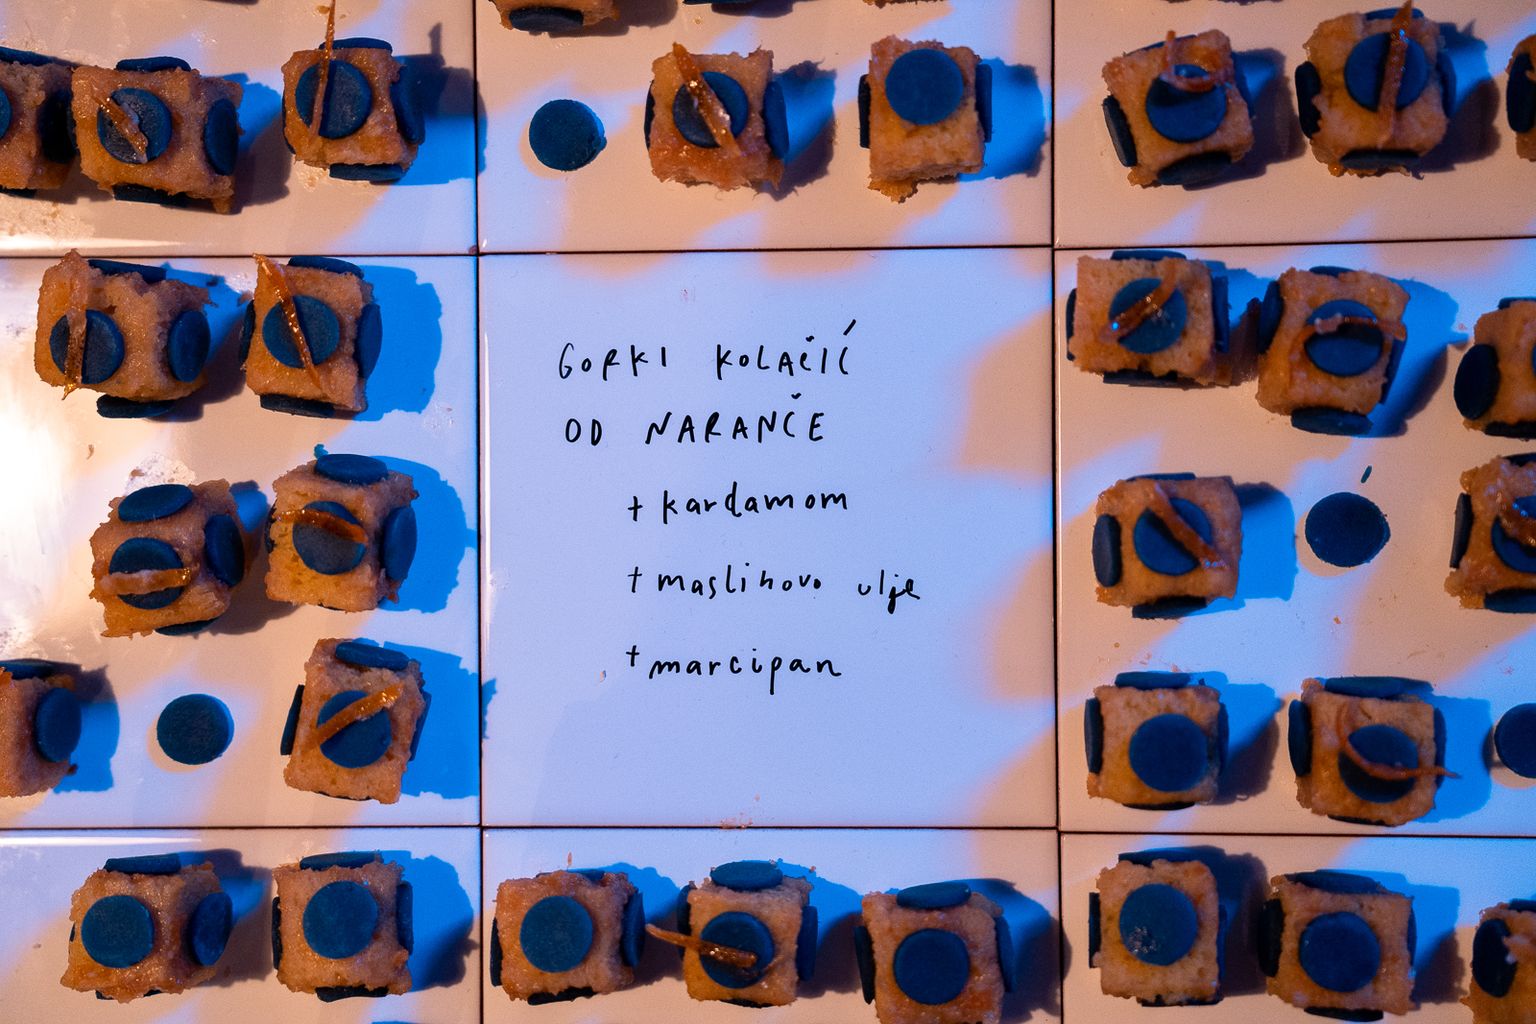 GORKI KOLAČIĆ
OD NARANČE
+ kardamom
+ maslinovo ulje
+ marcipan